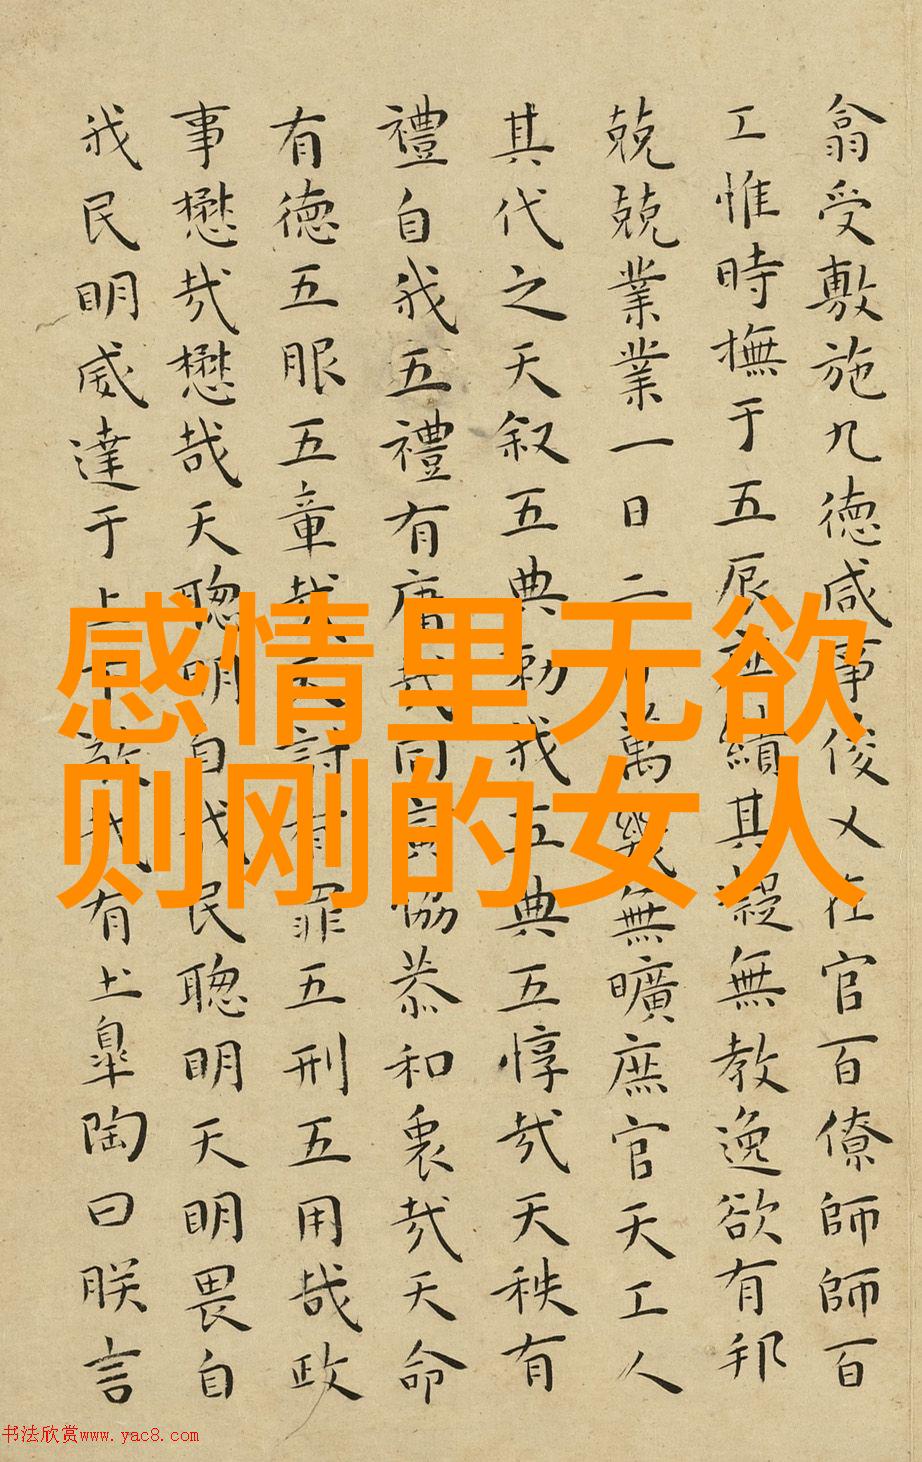 翕受敷施九德咸事俊乂在官百僚師師百
工惟時撫于五辰庶績其凝無教逸欲有邦
兢兢業業一日二日萬幾無曠庶官天工人
其代之天叙五典勑我五典五惇哉天秩有
禮自我五禮有庸哉同寅協恭和衷哉天命
有德五服五章哉天討有罪五刑五用哉政
事懋哉懋哉天聰明自我民聰明天明畏自
我民明威達于上下敬哉有土皋陶曰朕言
感情里无欲
则刚的女人
书法欣赏www.yac8.com